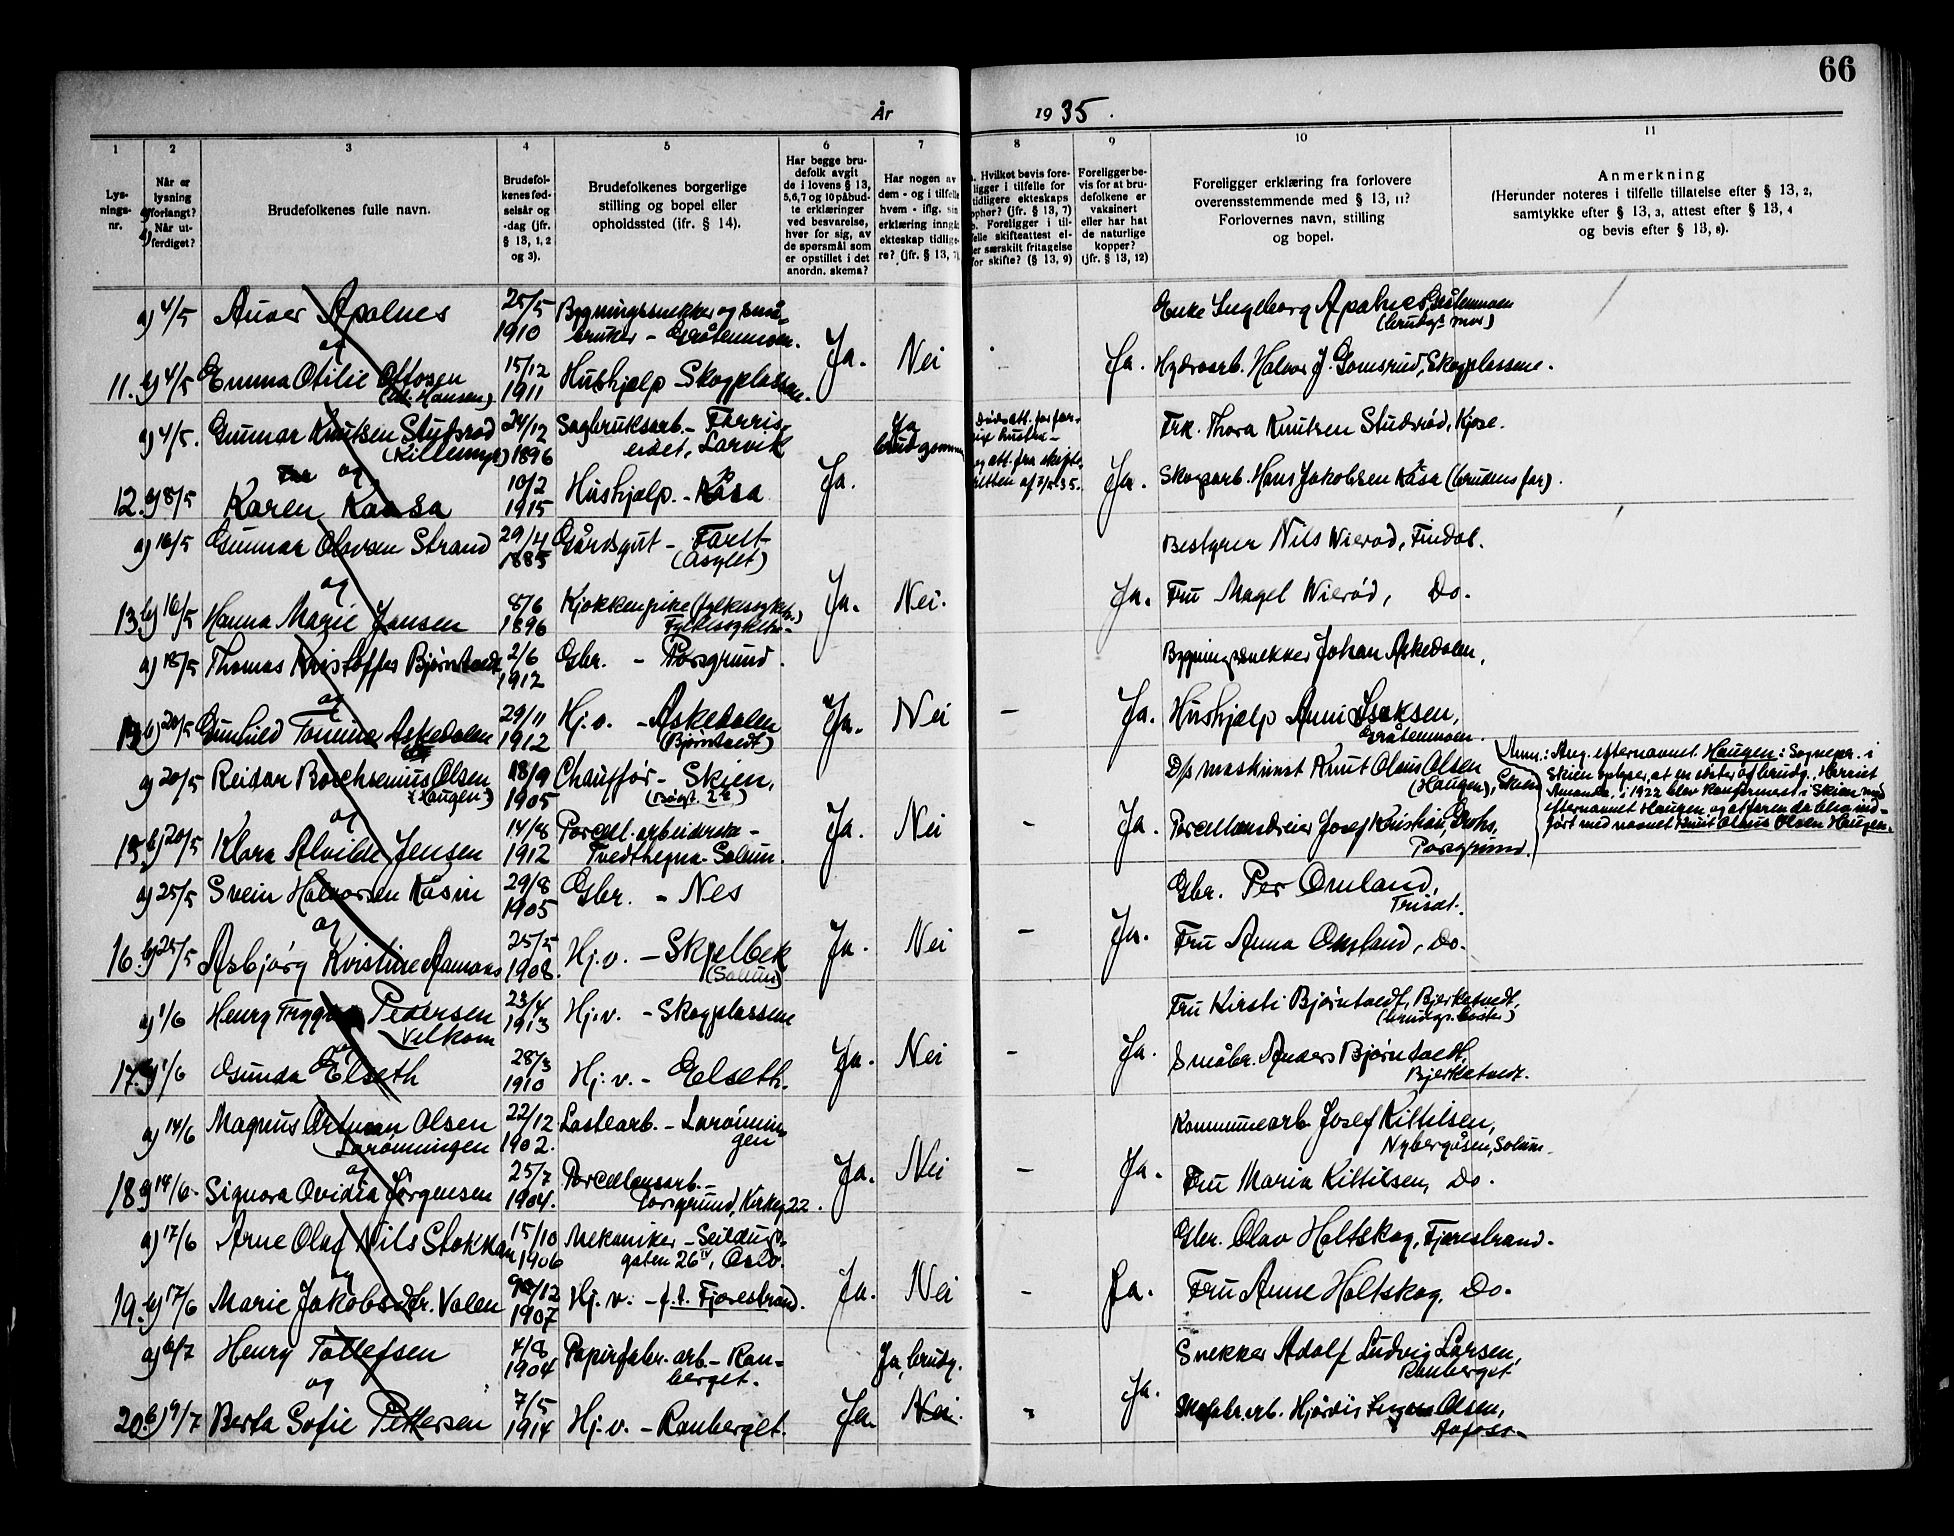 66
År 1935.
1 2 3 4 5 6 7 8 9 10 11
Lys-
nings-
nr.
Når er
lysning
forlangt?
Når ut-
ferdiget?
Brudefolkenes fulle navn.
Brudefol-
kenes fød-
selsår og
-dag (jfr.
§ 13, 1, 2
og 3).
Brudefolkenes borgerlige
stilling og bopel eller
opholdssted (ifr. § 14).
Har begge bru-
defolk avgit
de i lovens § 13,
5,6,7 og 10 påbud-
te erklæringer
ved besvarelse,
hver for sig, av
de spørsmål som
er opstillet i det
anordn. skema?
Har nogen av
dem - og i tilfelle
hvem - iflg. sin
erklæring inngk
ekteskap tidlige-
re? (jfr. § 13, 7)
. Hvilket bevis fore-
ligger i tilfelle for
tidligere ekteskaps
ophør? (jfr. § 13, 7)
b. Foreligger i til-
felle skifteattest el-
er særskilt fritagelse
for skifte? (§ 13, 9)
Foreligger be-
vis for at bru-
defolkene er
vaksinert
eller har hat
de naturlige
kopper?
(jfr. § 13, 12)
Foreligger erklæring fra forlovere
overensstemmende med § 13, 11?
Forlovernes navn, stilling
og bopel.
Anmerkning
(Herunder noteres i tilfelle tillatelse efter § 13, 2,
samtykke efter § 13, 3, attest efter § 13, 4
og bevis efter § 13, 8).
a) 4/5 Auver Apalnes 25/5 1910 Bygningssnekker og små-
bruker - Gråtenmoen. Enke Ingeborg Apalnes, Gråtenmoen
(brudg.s mor)
og
11. b) 4/5 Emma Otilie Ottosen 15/12 1911 Hushjelp Skogplassen. Ja. Nei Ja. Hydroarb. Halvor J. Gomsrud, Skogplassene.
Hansen)
a) 4/5. Gunnar Knutsen Stufsrød 24/12 1896 Sagbruksarb. - Farris-
eidet, Larvik Ja
brudgommen Dødsatt. for for-
ige hustru -
og att. fra skifte-
retten af 7/5 35. Frk. Thora Knutsen Studsrød, Kjose.
og
12. b) 8/5 Karen Kaasa 10/2 1915 Hushjelp. - Kåsa Ja. Ja. Skogsarb. Hans Jakobsen Kåsa (brudens far).
a) 16/5 Gunnar Olavsen Strand 29/4 1885 Gårdsgut - Farlt
(Asylet) Bestyrer Nils Wierød, Findal.
og
13. b) 16/5 Hanna Marie Jansen 8/6 1896 Kjøkkenpike (fylkessykeh.)
Fylkessykehu- Ja. Nei. Ja. Fru Magel Wierød, Do.
a) 18/5 Thomas Kristoffer Bjørntvedt 2/6 1912 Gbr. - Porsgrund. Bygningssnekker Johan Askedalen,
og
b) 20/5 Gunhild Tomine Askedalen 29/11 1912 Hj.v. - Askedalen
(Bjørntvedt) Ja. Nei - Ja. Hushjelp Anni Isaksen,
Gråtenmoen.
a) 20/5 Reidar Borchsenius Olsen
(Haugen) 18/9 1905 Chauffør - Skien,
(Bøgt. 28) D/s maskinist Knut Olaus Olsen
(Haugen), Skien
og
15. b) 20/5 Klara Alvilde Jensen 14/8 1912 Porcell. arbeiderske -
Tvedthegna - Solum. Ja. Nei - Ja. Porcellensdreier Josef Kristian Grohs,
Porsgrund.
Anm.: Ang. efternavnet Haugen: Sognepr. i
Skien oplyser, at en søster af brudg., Harriet
Amanda, i 1922 blev konfirmert i Skien med
efternavnet Haugen og at faren da blev ind-
ført med navnet Knut Olaus Olsen Haugen.
a) 25/5 Svein Halvorsen Kåsin 29/8 1905 Gbr. - Nes Gbr. Per Omland,
Trisæt.
og
16. b) 25/5 Asbjørg Kristine Aamans 25/5 1908. Hj.v. - Skjelbek
(Solum) Ja. Nei - Ja. Fru Anna Omland, Do.
a) 1/6 Henry Trygve Pedersen
Velkom 23/4 1913 Hj.v. - Skogplassene Fru Kirsti Bjørntvedt, Bjerketvedt,
og
17. b) 1/6 Gunda Elseth 28/3 1910 Hj.v. - Eelseth. Ja. Nei - Ja. Småbr. Anders Bjørntvedt,
Bjerketvedt.
a) 14/6 Magnus Ortman Olsen
Larønningen 22/12 1902. Lastearb. - Larønnin-
gen Kommunearb. Josef Kittilsen,
Nybergåsen, Solum.
og
18. b) 14/6 Signora Ovidia Jørgensen 25/7 1904. Porcellensarb. -
Porsgrund, Kirkeg 22. Ja. Nei - Ja. Fru Maria Kittilsen, Do.
a) 17/6 Arne Olaf Nils Stokkan 15/10 1906 Mekaniker - Seildugs-
gaten 26 IV, Oslo. Gbr. Olav Holtskog, Fjærestrand.
og
19. b) 17/6 Marie Jakobsdtr. Valen /12 1907 Hj.v. - f.t. Fjærestrand. Ja. Nei - Ja. Fru Anne Holtskog, Do.
a) 6/7 Henry Tollefsen 4/8 1904 Papirfabr. arb. - Ran-
berget. Ja, brudg. Snekker Adolf Ludvig Larsen,
Ranberget
og
20. b) 9/7 Berta Sofie Pettersen 7/5 1914 Hj.v. - Ranberget. Ja. Nei. - Ja. Skofabr.arb. Hjørdis Olsen,
Aafoss-